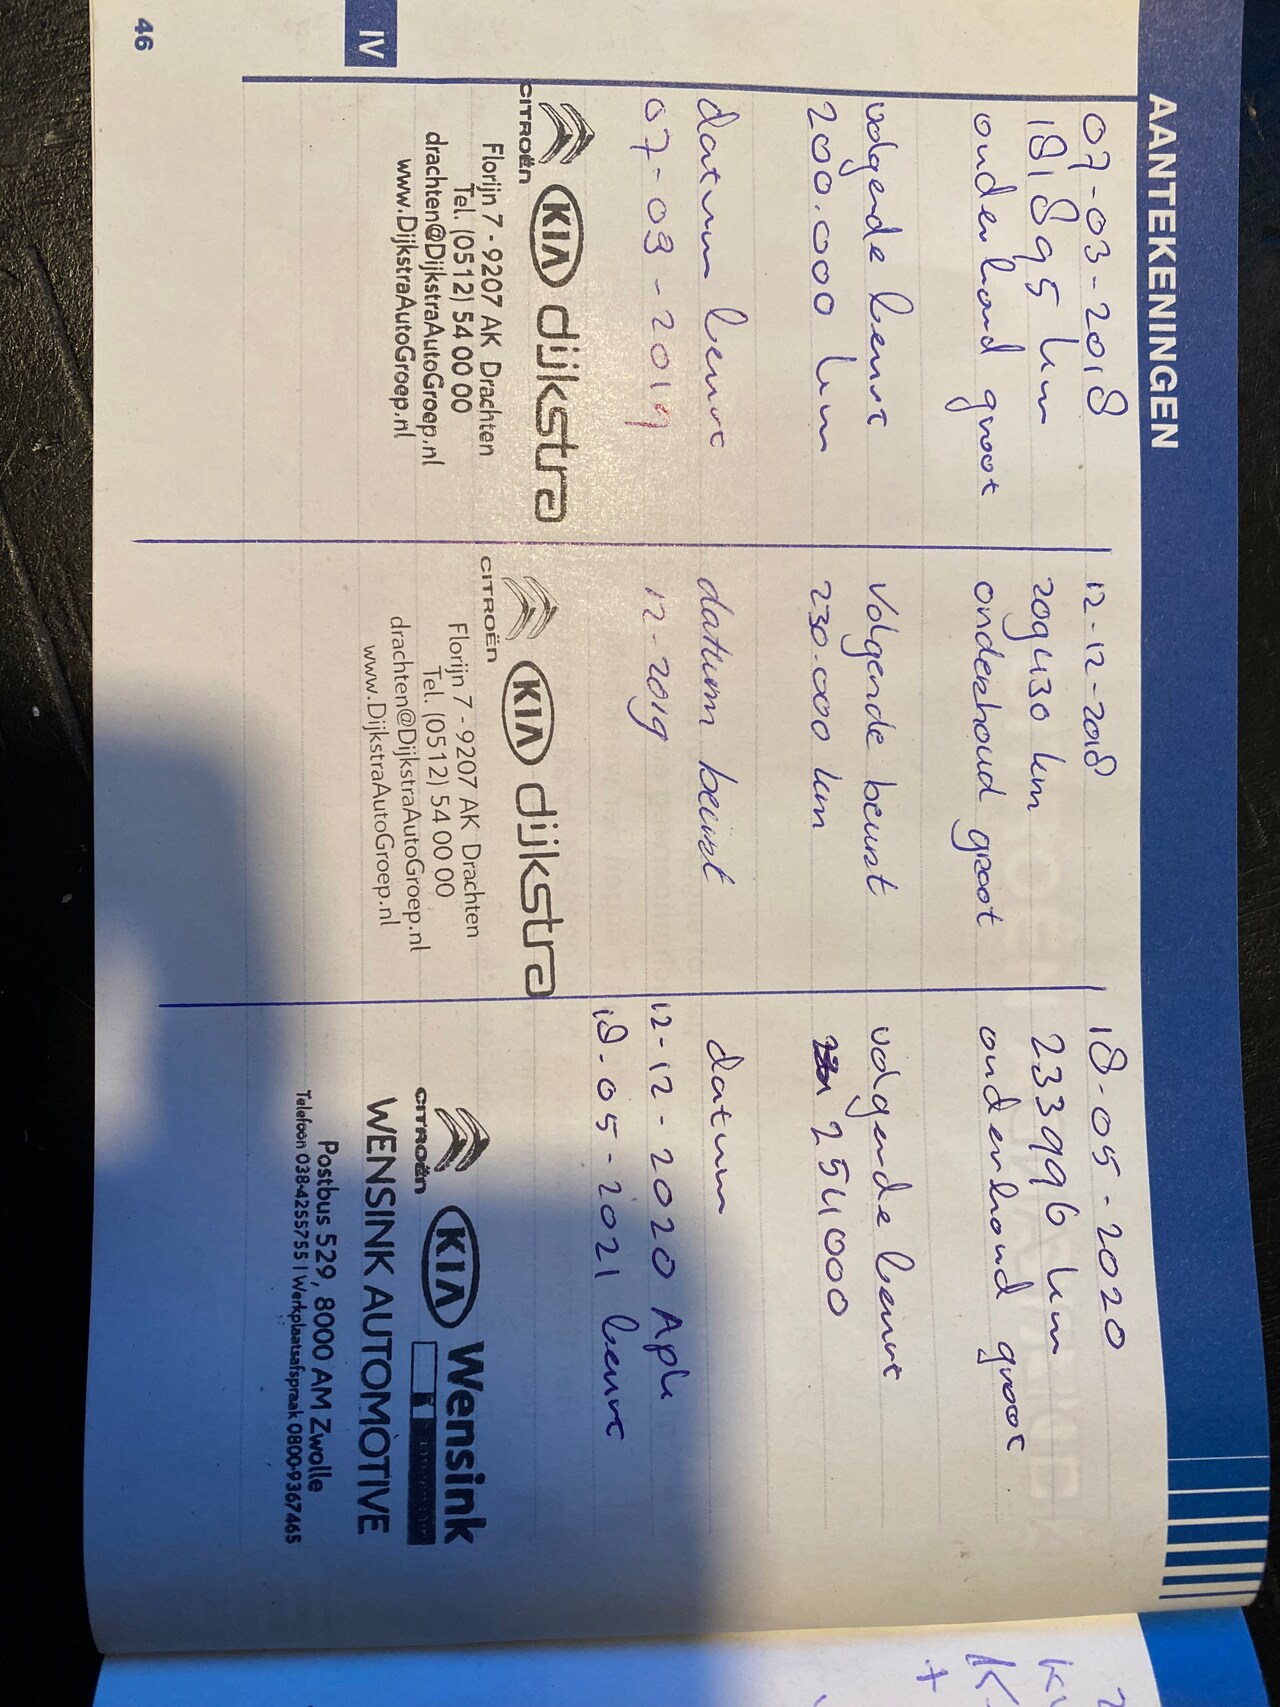 AANTEKENINGEN
07-03-2018
181895 km
onderhoud groot
volgende beurt
200.000 km
datum beurt
07-03-2019
CITROËN KIA dijkstra
Florijn 7 - 9207 AK Drachten
Tel. (0512) 54 00 00
drachten@DijkstraAutoGroep.nl
www.DijkstraAutoGroep.nl
12-12-2018
209430 km
onderhoud groot
volgende beurt
230.000 km
datum beurt
12-2019
CITROËN KIA dijkstra
Florijn 7 - 9207 AK Drachten
Tel. (0512) 54 00 00
drachten@DijkstraAutoGroep.nl
www.DijkstraAutoGroep.nl
18-05-2020
233996 km
onderhoud groot
volgende beurt
254000
datum
12-12-2020 Apk
18-05-2021 beurt
CITROËN KIA Wensink
WENSINK AUTOMOTIVE
Postbus 529, 8000 AM Zwolle
Telefoon 038-4255755 | Werkplaatsafspraak 0800-9367465
IV
46